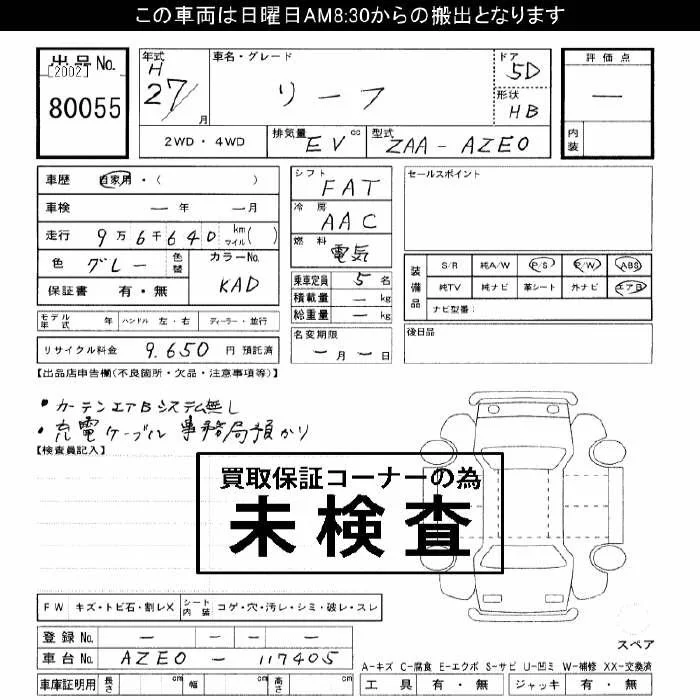 この車両は日曜日AM8:30からの搬出となります
出品No.
[2002]
80055
年式
H
27/
月
車名・グレード
リーフ
ドア
5D
形状
HB
評価点
―
内装
2WD・4WD
排気量 EV cc
型式 ZAA-AZE0
車歴 自家用・( )
車検 ― 年 ― 月
走行 9万6千640 km マイル( )
色 グレー 色替
カラーNo.
KAD
保証書 有・無
シフト
FAT
冷房
AAC
燃料
電気
セールスポイント
乗車定員 5 名
積載量 ― kg
総重量 ― kg
装備品
S/R 純A/W P/S P/W ABS
純TV 純ナビ 革シート 外ナビ エアB
ナビ型番:
モデル年式 年 ハンドル 左・右 ディーラー・並行
名変期限
― 月 ― 日
後日品
リサイクル料金 9.650 円 預託済
【出品店申告欄(不良箇所・欠品・注意事項等)】
・カーテンエアBシステム無し
・充電ケーブル 事務局預かり
【検査員記入】
買取保証コーナーの為
未検査
FW キズ・トビ石・割レX シート内装 コゲ・穴・汚レ・シミ・破レ・スレ
登録No. ― ― ―
車台No. AZE0 - 117405
スペア
A-キズ C-腐食 E-エクボ S-サビ U-凹ミ W-補修 XX-交換済
車庫証明用 長さ cm 幅 cm 高さ cm
工具 有・無 ジャッキ 有・無